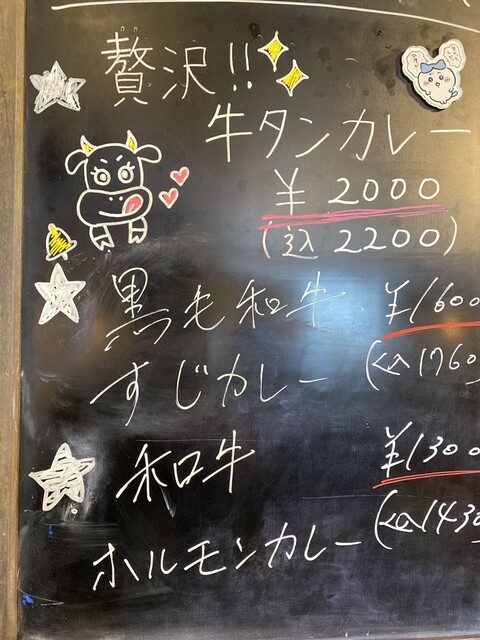 贅沢!!
牛タンカレー
¥2000
(込2200)
黒毛和牛 ¥1600
すじカレー (込1760)
和牛 ¥1300
ホルモンカレー (込1430